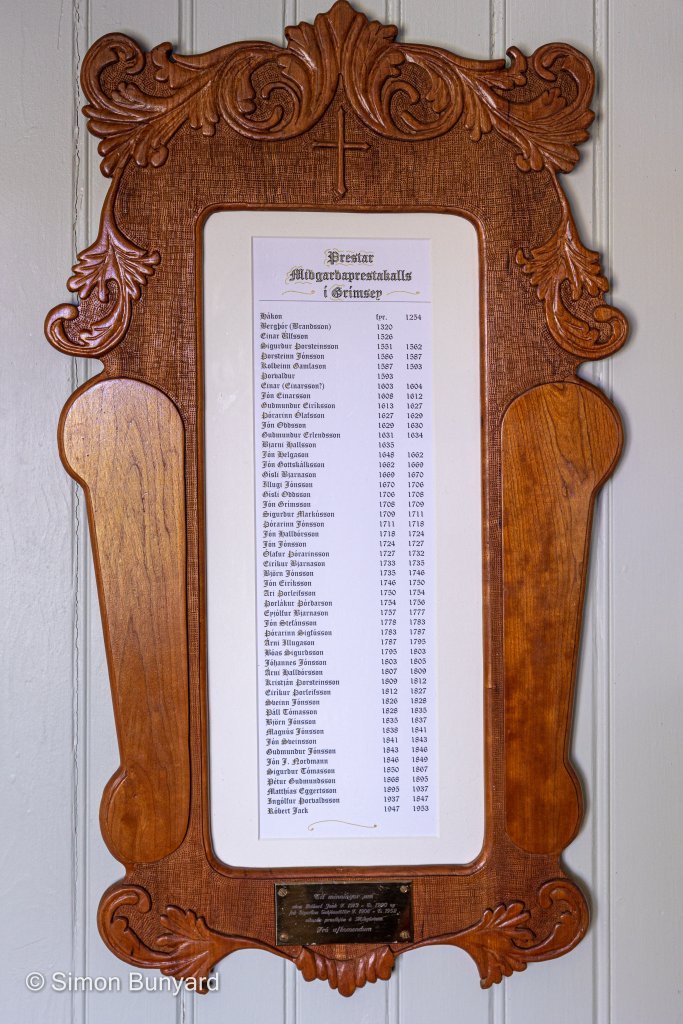 Prestar
Miðgarðaprestakalls
í Grímsey
Hákon fyr. 1254
Bergþór (Brandsson) 1320
Einar Úlfsson 1526
Sigurður Þorsteinsson 1551 1562
Þorsteinn Jónsson 1586 1587
Kolbeinn Gamlason 1587 1593
Þorvaldur 1593
Einar (Einarsson?) 1603 1604
Jón Einarsson 1608 1612
Guðmundur Eiríksson 1613 1627
Þórarinn Ólafsson 1627 1629
Jón Oddsson 1629 1630
Guðmundur Erlendsson 1631 1634
Bjarni Hallsson 1635
Jón Helgason 1648 1662
Jón Gottskálksson 1662 1669
Gísli Bjarnason 1669 1670
Illugi Jónsson 1670 1706
Gísli Oddsson 1706 1708
Jón Grímsson 1708 1709
Sigurður Markússon 1709 1711
Þórarinn Jónsson 1711 1718
Jón Halldórsson 1718 1724
Jón Jónsson 1724 1727
Ólafur Þórarinsson 1727 1732
Eiríkur Bjarnason 1733 1735
Björn Jónsson 1735 1746
Jón Eiríksson 1746 1750
Ari Þorleifsson 1750 1754
Þorlákur Þórðarson 1754 1756
Eyjólfur Bjarnason 1757 1777
Jón Stefánsson 1778 1783
Þórarinn Sigfússon 1783 1787
Árni Illugason 1787 1795
Bóas Sigurðsson 1795 1803
Jóhannes Jónsson 1803 1805
Árni Halldórsson 1807 1809
Kristján Þorsteinsson 1809 1812
Eiríkur Þorleifsson 1812 1827
Sveinn Jónsson 1826 1828
Páll Tómasson 1828 1835
Björn Jónsson 1835 1837
Magnús Jónsson 1838 1841
Jón Sveinsson 1841 1843
Guðmundur Jónsson 1843 1846
Jón J. Norðmann 1846 1849
Sigurður Tómasson 1850 1867
Pétur Guðmundsson 1868 1895
Matthías Eggertsson 1895 1937
Ingólfur Þorvaldsson 1937 1847
Róbert Jack 1947 1953
Til minningar um
séra Róbert Jack F. 1913 - D. 1990 og
frú
Frá
© Simon Bunyard